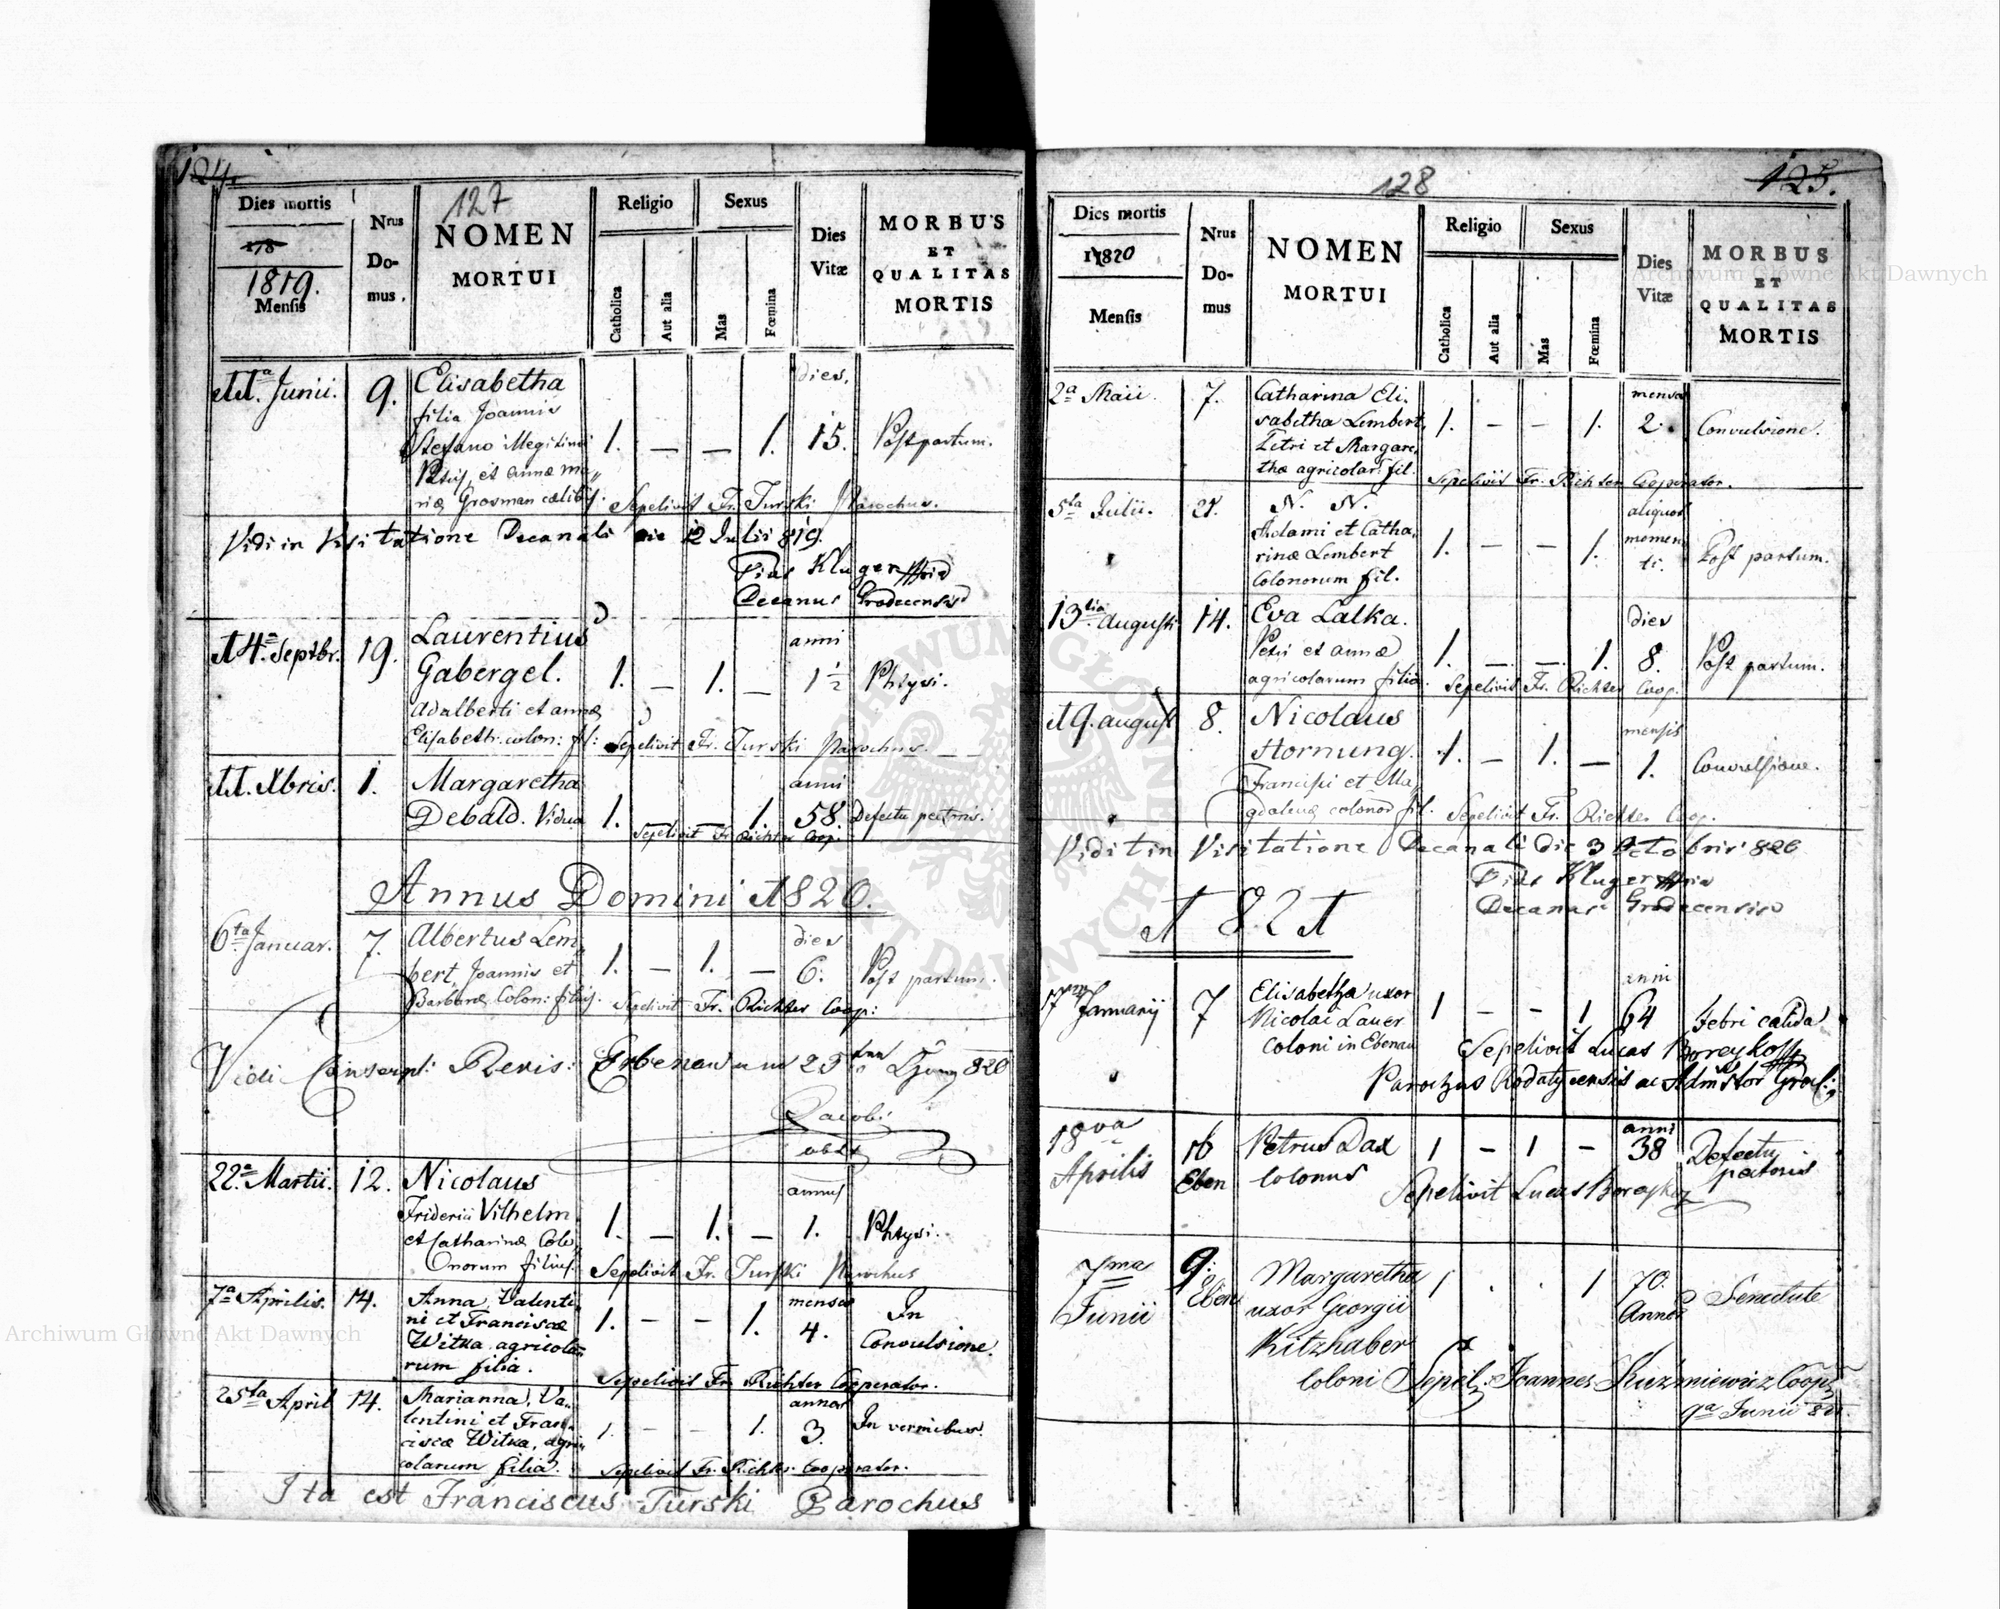 124.
127
Dies mortis
178
1819.
Mensis
Nrus
Do-
mus.
NOMEN
MORTUI
Religio
Catholica
Aut alia
Sexus
Mas
Fœmina
Dies
Vitæ
MORBUS
ET
QUALITAS
MORTIS
11.a Junii. 9. Elisabetha dies.
filia Joannis
Stefano 1. — — 1. 15. Post partum.
et Annæ Ma„
riæ Grosman cælibis. Sepelivit Fr. Turski Parochus.
Vidi in Visitatione Decanali die 12 Julii 819.
Pius Kluger
Decanus Grodecensis
14.a Septbr. 19. Laurentius anni
Gabergel. 1. — 1. — 1 1/2 Phtysi.
Adalberti et annæ
Elisabeth: colon: fil: Sepelivit Fr. Turski Parochus.
11. Xbris. 1. Margaretha anni
Debald. Vidua 1. — — 1. 58. Defectu pectoris.
Sepelivit Fr. Richter Coop:
Annus Domini 1820.
6ta Januar. 7. Albertus Lem„ dies
bert, Joannis et 1. — 1. — 6. Post partum.
Barbaræ Colon: filius. Sepelivit Fr. Richter Coop:
Vidi Conscrip: Revis: Ebenau 820
Jacobi
22.a Martii. 12. Nicolaus annus
Friderici Vilhelm 1. — 1. — 1. Phtysi.
et Catharinæ Colo„
norum filius. Sepelivit Fr. Turski Parochus
7a Aprilis. 14. Anna, Valenti„ menses In
ni et Franciscæ 1. — — 1. 4. Convulsione.
Witka agricola„
rum filia. Sepelivit Fr. Richter Cooperator.
25ta April 14. Marianna, Va„ annos
lentini et Fran„ 1. — — 1. 3. In vermibus.
ciscæ Witka, agri„
colarum filia. Sepelivit Fr. Richter Cooperator.
Ita est Franciscus Turski Parochus
128
125.
Dies mortis
1820
Mensis
Nrus
Do-
mus
NOMEN
MORTUI
Religio
Catholica
Aut alia
Sexus
Mas
Fœmina
Dies
Vitæ
MORBUS
ET
QUALITAS
MORTIS
2a Maii. 7. Catharina Eli„ menses
sabetha Lembert, 1. — — 1. 2. Convulsione.
Petri et Margare„
thæ agricolar: fil. Sepelivit Fr. Richter Cooperator.
5ta Julii. 21. N. N. aliquot
Adami et Catha„ momen„
rinæ Lembert 1. — — 1. ti. Post partum.
Colonorum fil.
13tia Augusti 14. Eva Lalka. dies
Petri et Annæ 1. — — 1. 8. Post partum.
agricolarum filia. Sepelivit Fr. Richter Coop.
19. august 8. Nicolaus mensis
Hornung. 1. — 1. — 1. Convulsione.
Francisci et Ma„
gdalenæ colonor fil. Sepelivit Fr. Richter Coop.
Vidi in Visitatione Decanali die 3 Octobris 820
Pius Kluger
Decanus Grodecensis
1821
17ma Januarij 7 Elisabetha uxor anni
Nicolai Lauer 1 — — 1 64 Febri calida
Coloni in Ebenau Sepelivit Lucas Boreyko
Parochus Rodatycensis ac Admstor Grod:
18va anni
Aprilis 16 Petrus Dax 1 — 1 — 38 Defectu
Eben Colonus pectoris
Sepelivit Lucas Boreyko
7ma 9. Margaretha 1 . . 1 70. Senectute
Junii Eben uxor Georgii Annos
Kitzhaber
Coloni Sepel: Joannes Kuzmiewicz Coop
9a Junii 821.
Archiwum Główne Akt Dawnych
Archiwum Główne Akt Dawnych
ARCHIWUM GŁÓWNE AKT DAWNYCH